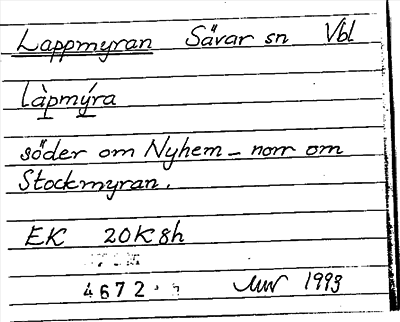 Lappmyran Sävar sn Vbl
làpmýra
söder om Nyhem – norr om
Stockmyran.
EK 20K8h
4672
1993